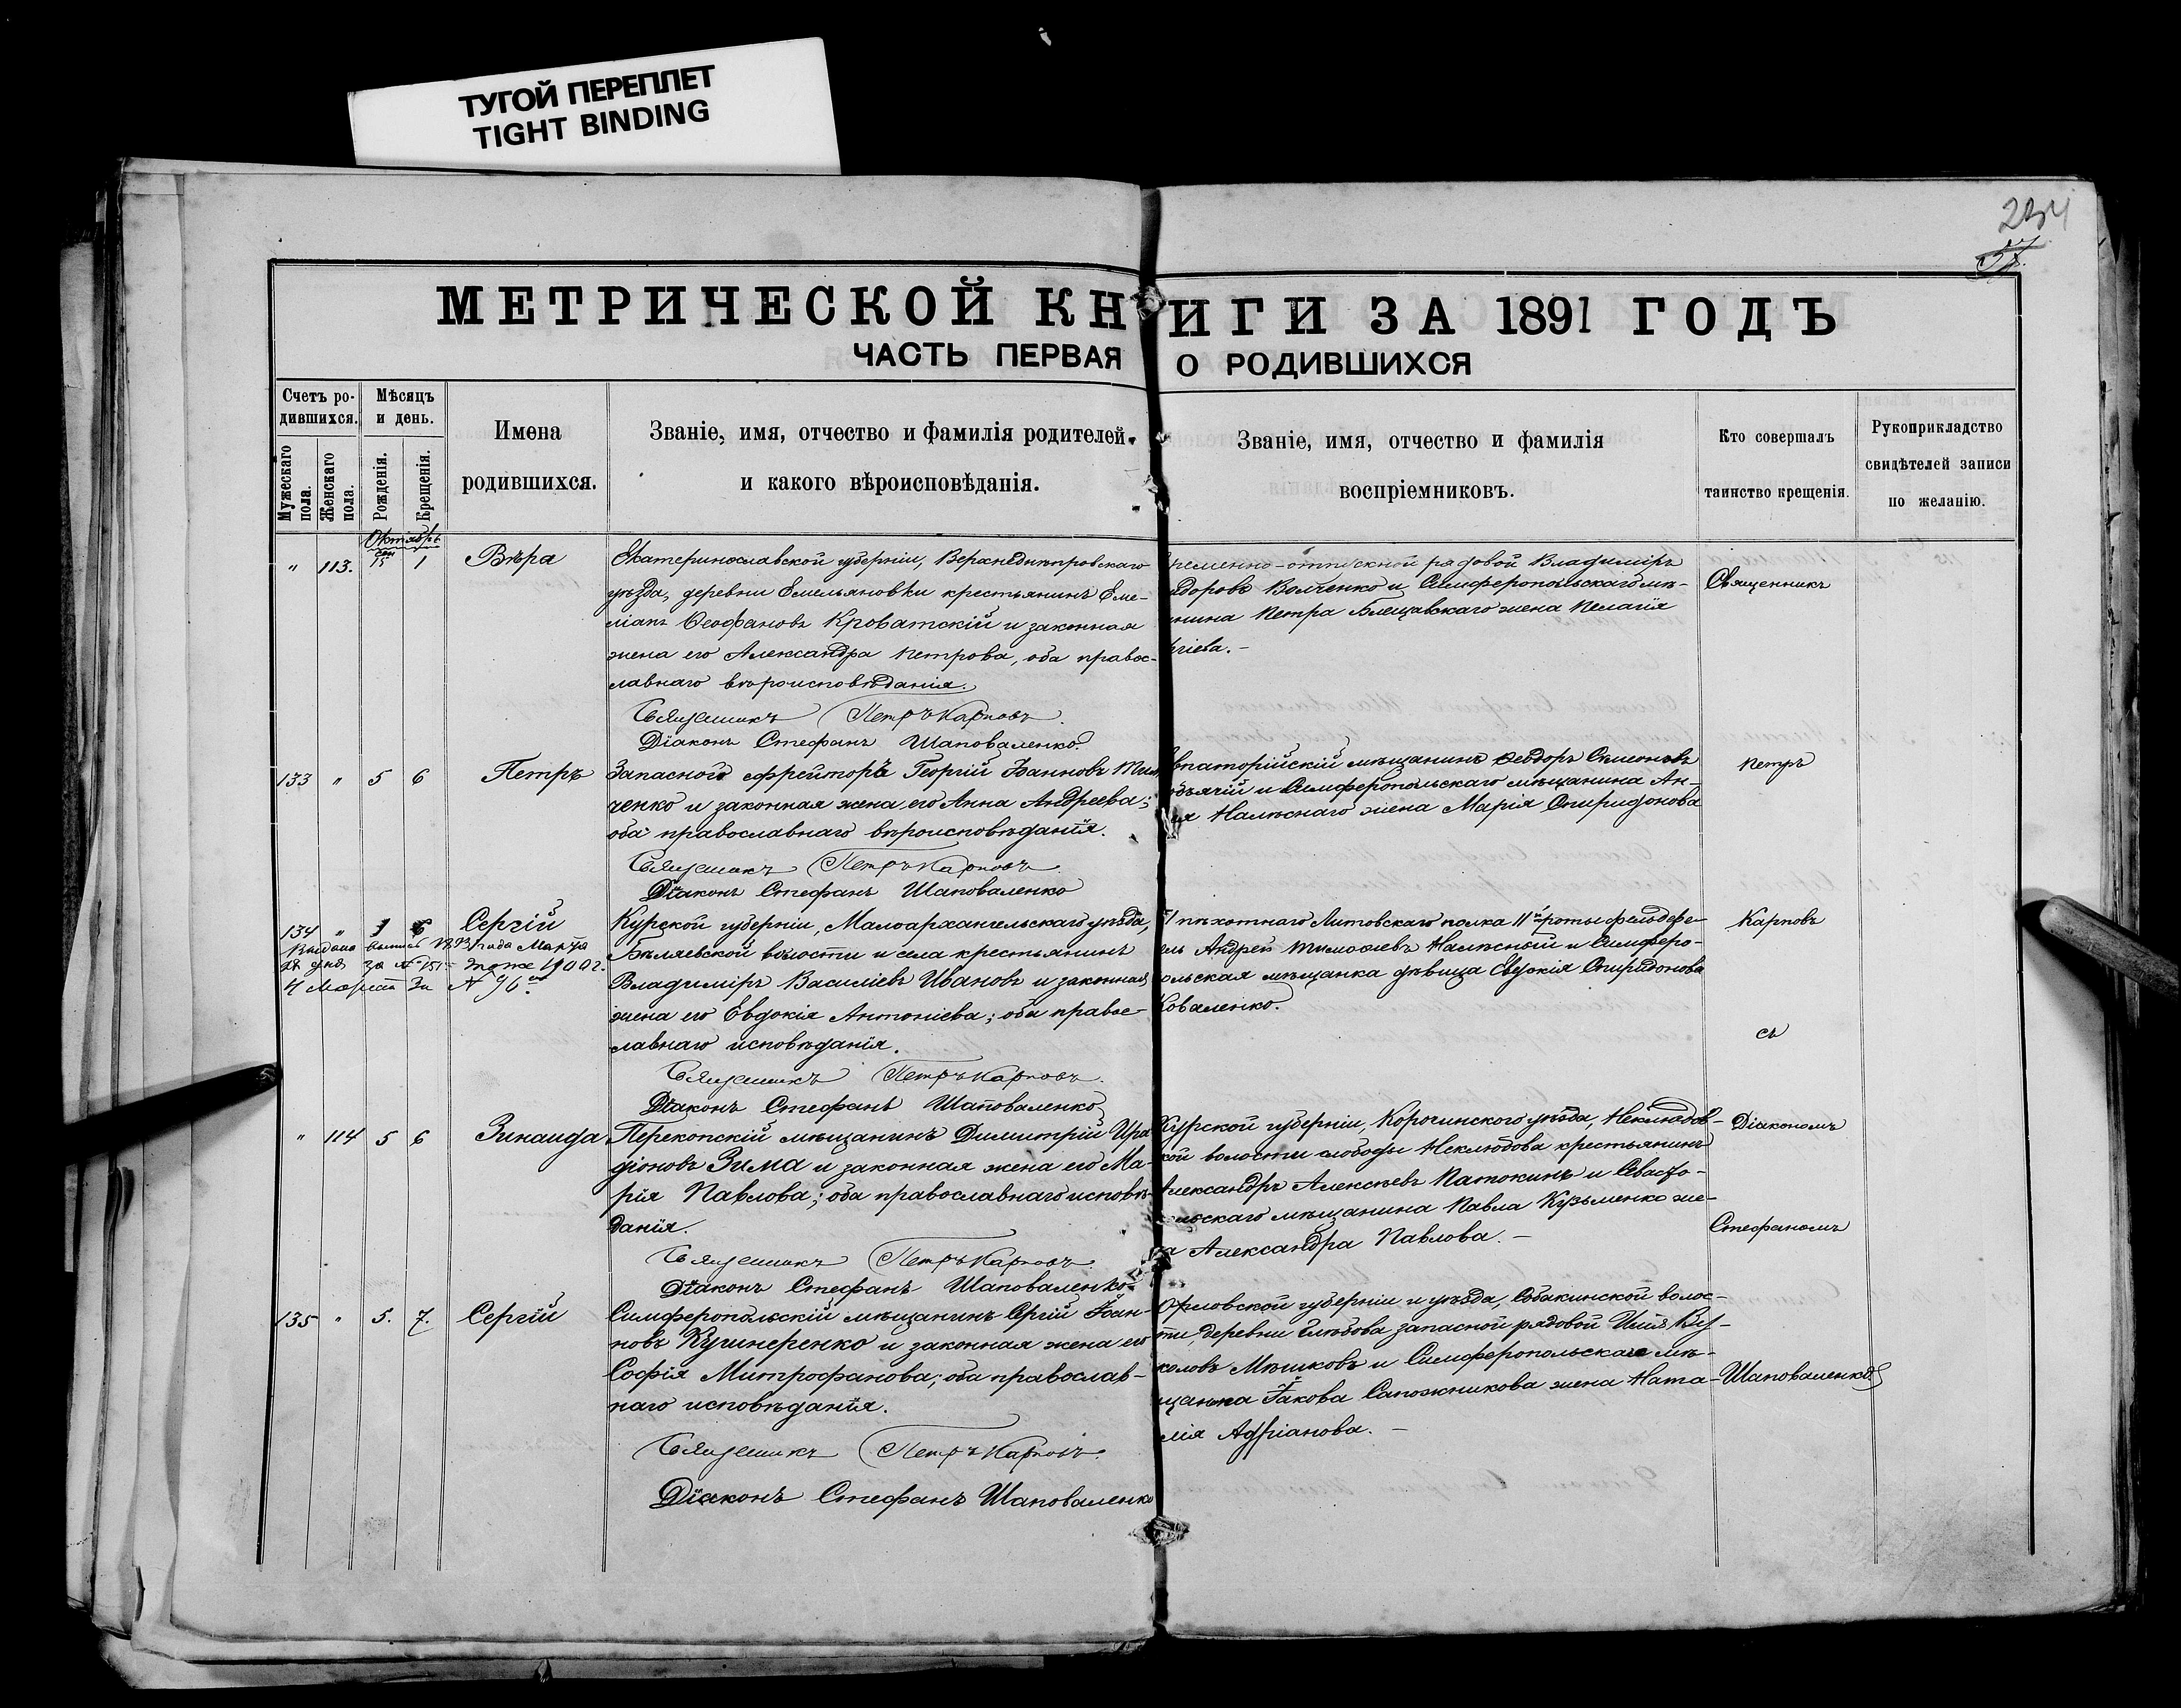 ТУГОЙ ПЕРЕПЛЕТ
TIGHT BINDING
234
57.
МЕТРИЧЕСКОЙ КНИГИ ЗА 1891 ГОДЪ
ЧАСТЬ ПЕРВАЯ О РОДИВШИХСЯ
Счетъ ро-
дившихся.
Мужескаго пола.
Женскаго пола.
Мѣсяцъ
и день.
Рожденія.
Крещенія.
Имена
родившихся.
Званіе, имя, отчество и фамилія родителей,
и какого вѣроисповѣданія.
Званіе, имя, отчество и фамилія
воспріемниковъ.
Кто совершалъ
таинство крещенія.
Рукоприкладство
свидѣтелей записи
по желанію.
Октябрь
" 113. 15 1 Вѣра
Екатеринославской губерніи, Верхнеднѣпровскаго
уѣзда, деревни Емельяновки крестьянинъ Еме-
ліанъ Ѳеофановъ Кроватскій и законная
жена его Александра Петрова, оба правос-
лавнаго вѣроисповѣданія.
Священникъ Петръ Карповъ.
Діаконъ Стефанъ Шаповаленко.
ременно-отпускной рядовой Владиміръ
идоровъ Волченко и Симферопольскаго мѣ-
нина Петра Блещавскаго жена Пелагія
гіева. -
Священникъ
133 " 5 6 Петръ
Запасного ефрейторъ Георгій Іоанновъ
ченко и законная жена его Анна Андреева;
оба православнаго вѣроисповѣданія.
Священникъ Петръ Карповъ.
Діаконъ Стефанъ Шаповаленко
впаторійскій мѣщанинъ Ѳеодоръ Симеоновъ
одьячій и Симферопольскаго мѣщанина Ан-
ея Налѣснаго жена Марія Спиридонова
Петръ
134 " 6 Сергій
Выдана выпись 1893 года Марта
дня за № 151 тоже 1900 г.
4 Марта за № 96
Курской губерніи, Малоархангельскаго уѣзда,
Бѣляевской волости и села крестьянинъ
Владиміръ Василіевъ Ивановъ и законная
жена его Евдокія Антоніева; оба правос-
лавнаго исповѣданія.
Священникъ Петръ Карповъ.
Діаконъ Стефанъ Шаповаленко
51 пѣхотнаго Литовскаго полка 11й роты фельдфе-
ель Андрей Тимофеевъ Налѣсный и Симферо-
ольская мѣщанка дѣвица Евдокія Спиридонова
Коваленко.
Карповъ
съ
" 114 5 6 Зинаида
Перекопскій мѣщанинъ Димитрій Ира
діоновъ Зима и законная жена его Ма-
рія Павлова; оба православнаго исповѣ-
данія.
Священникъ Петръ Карповъ.
Діаконъ Стефанъ Шаповаленко
Курской губерніи, Корочинского уѣзда, Неклюдов-
кой волости слободы Неклюдова крестьянинъ
Александръ Алексѣевъ Патокинъ и Севасто-
ольскаго мѣщанина Павла Кузьменко же-
на Александра Павлова. -
Діакономъ
Стефаномъ
135 " 5. 7. Сергій
Симферопольскій мѣщанинъ Сергій Іоан-
новъ Кушнеренко и законная жена его
Софія Митрофанова; оба православ-
наго исповѣданія.
Священникъ Петръ Карповъ.
Діаконъ Стефанъ Шаповаленко
Орловской губерніи и уѣзда, Собакинской волос-
ти, деревни Глѣбова запасной рядовой
коловъ Мѣшковъ и Симферопольская мѣ-
щанина Іакова Сапожникова жена Ната-
лія Адріанова. -
Шаповаленко